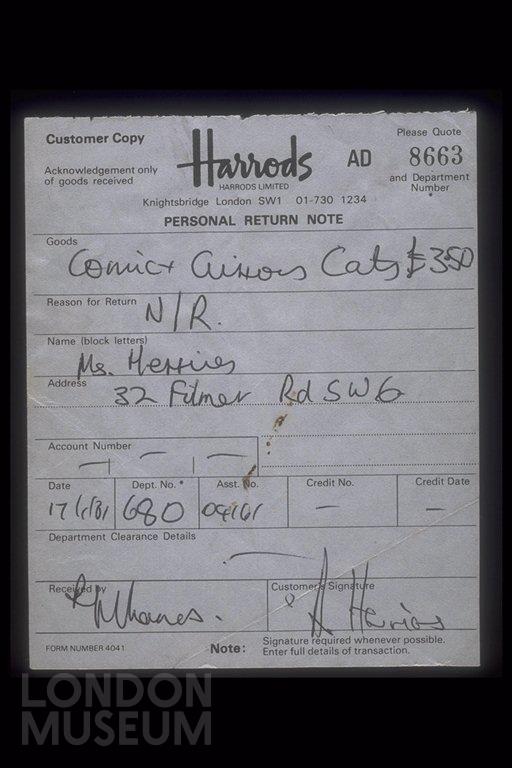 Customer Copy
Acknowledgement only
of goods received
Harrods
HARRODS LIMITED
AD
Please Quote
8663
and Department
Number
*
Knightsbridge London SW1 01-730 1234
PERSONAL RETURN NOTE
Goods
Comic+ Cats 350
Reason for Return
N/R.
Name (block letters)
Ms.
Address
32 Filmer Rd SW6
Account Number
— — —
Date
Dept. No. *
Asst. No.
Credit No.
Credit Date
680
—
—
Department Clearance Details
—
Received by
Customer's Signature
FORM NUMBER 4041
Note:
Signature required whenever possible.
Enter full details of transaction.
LONDON
MUSEUM